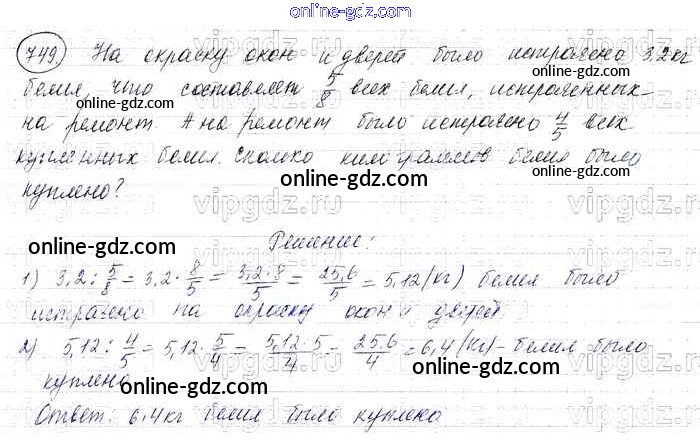 online-gdz.com
749. На окраску окон и дверей было истрачено 3,2 кг
белил, что составляет 5/8 всех белил, истраченных
online-gdz.com online-gdz.com
на ремонт. А на ремонт было истрачено 4/5 всех
купленных белил. Сколько килограммов белил было
online-gdz.com
куплено?
vipgdz.ru vipgdz.ru vipgdz.ru
online-gdz.com
Решение:
1) 3,2 : 5/8 = 3,2 · 8/5 = 3,2·8/5 = 25,6/5 = 5,12 (кг) белил было
истрачено на окраску окон и дверей
online-gdz.com
2) 5,12 : 4/5 = 5,12 · 5/4 = 5,12·5/4 = 25,6/4 = 6,4 (кг) – белил было
куплено
online-gdz.com online-gdz.com
Ответ: 6,4 кг белил было куплено